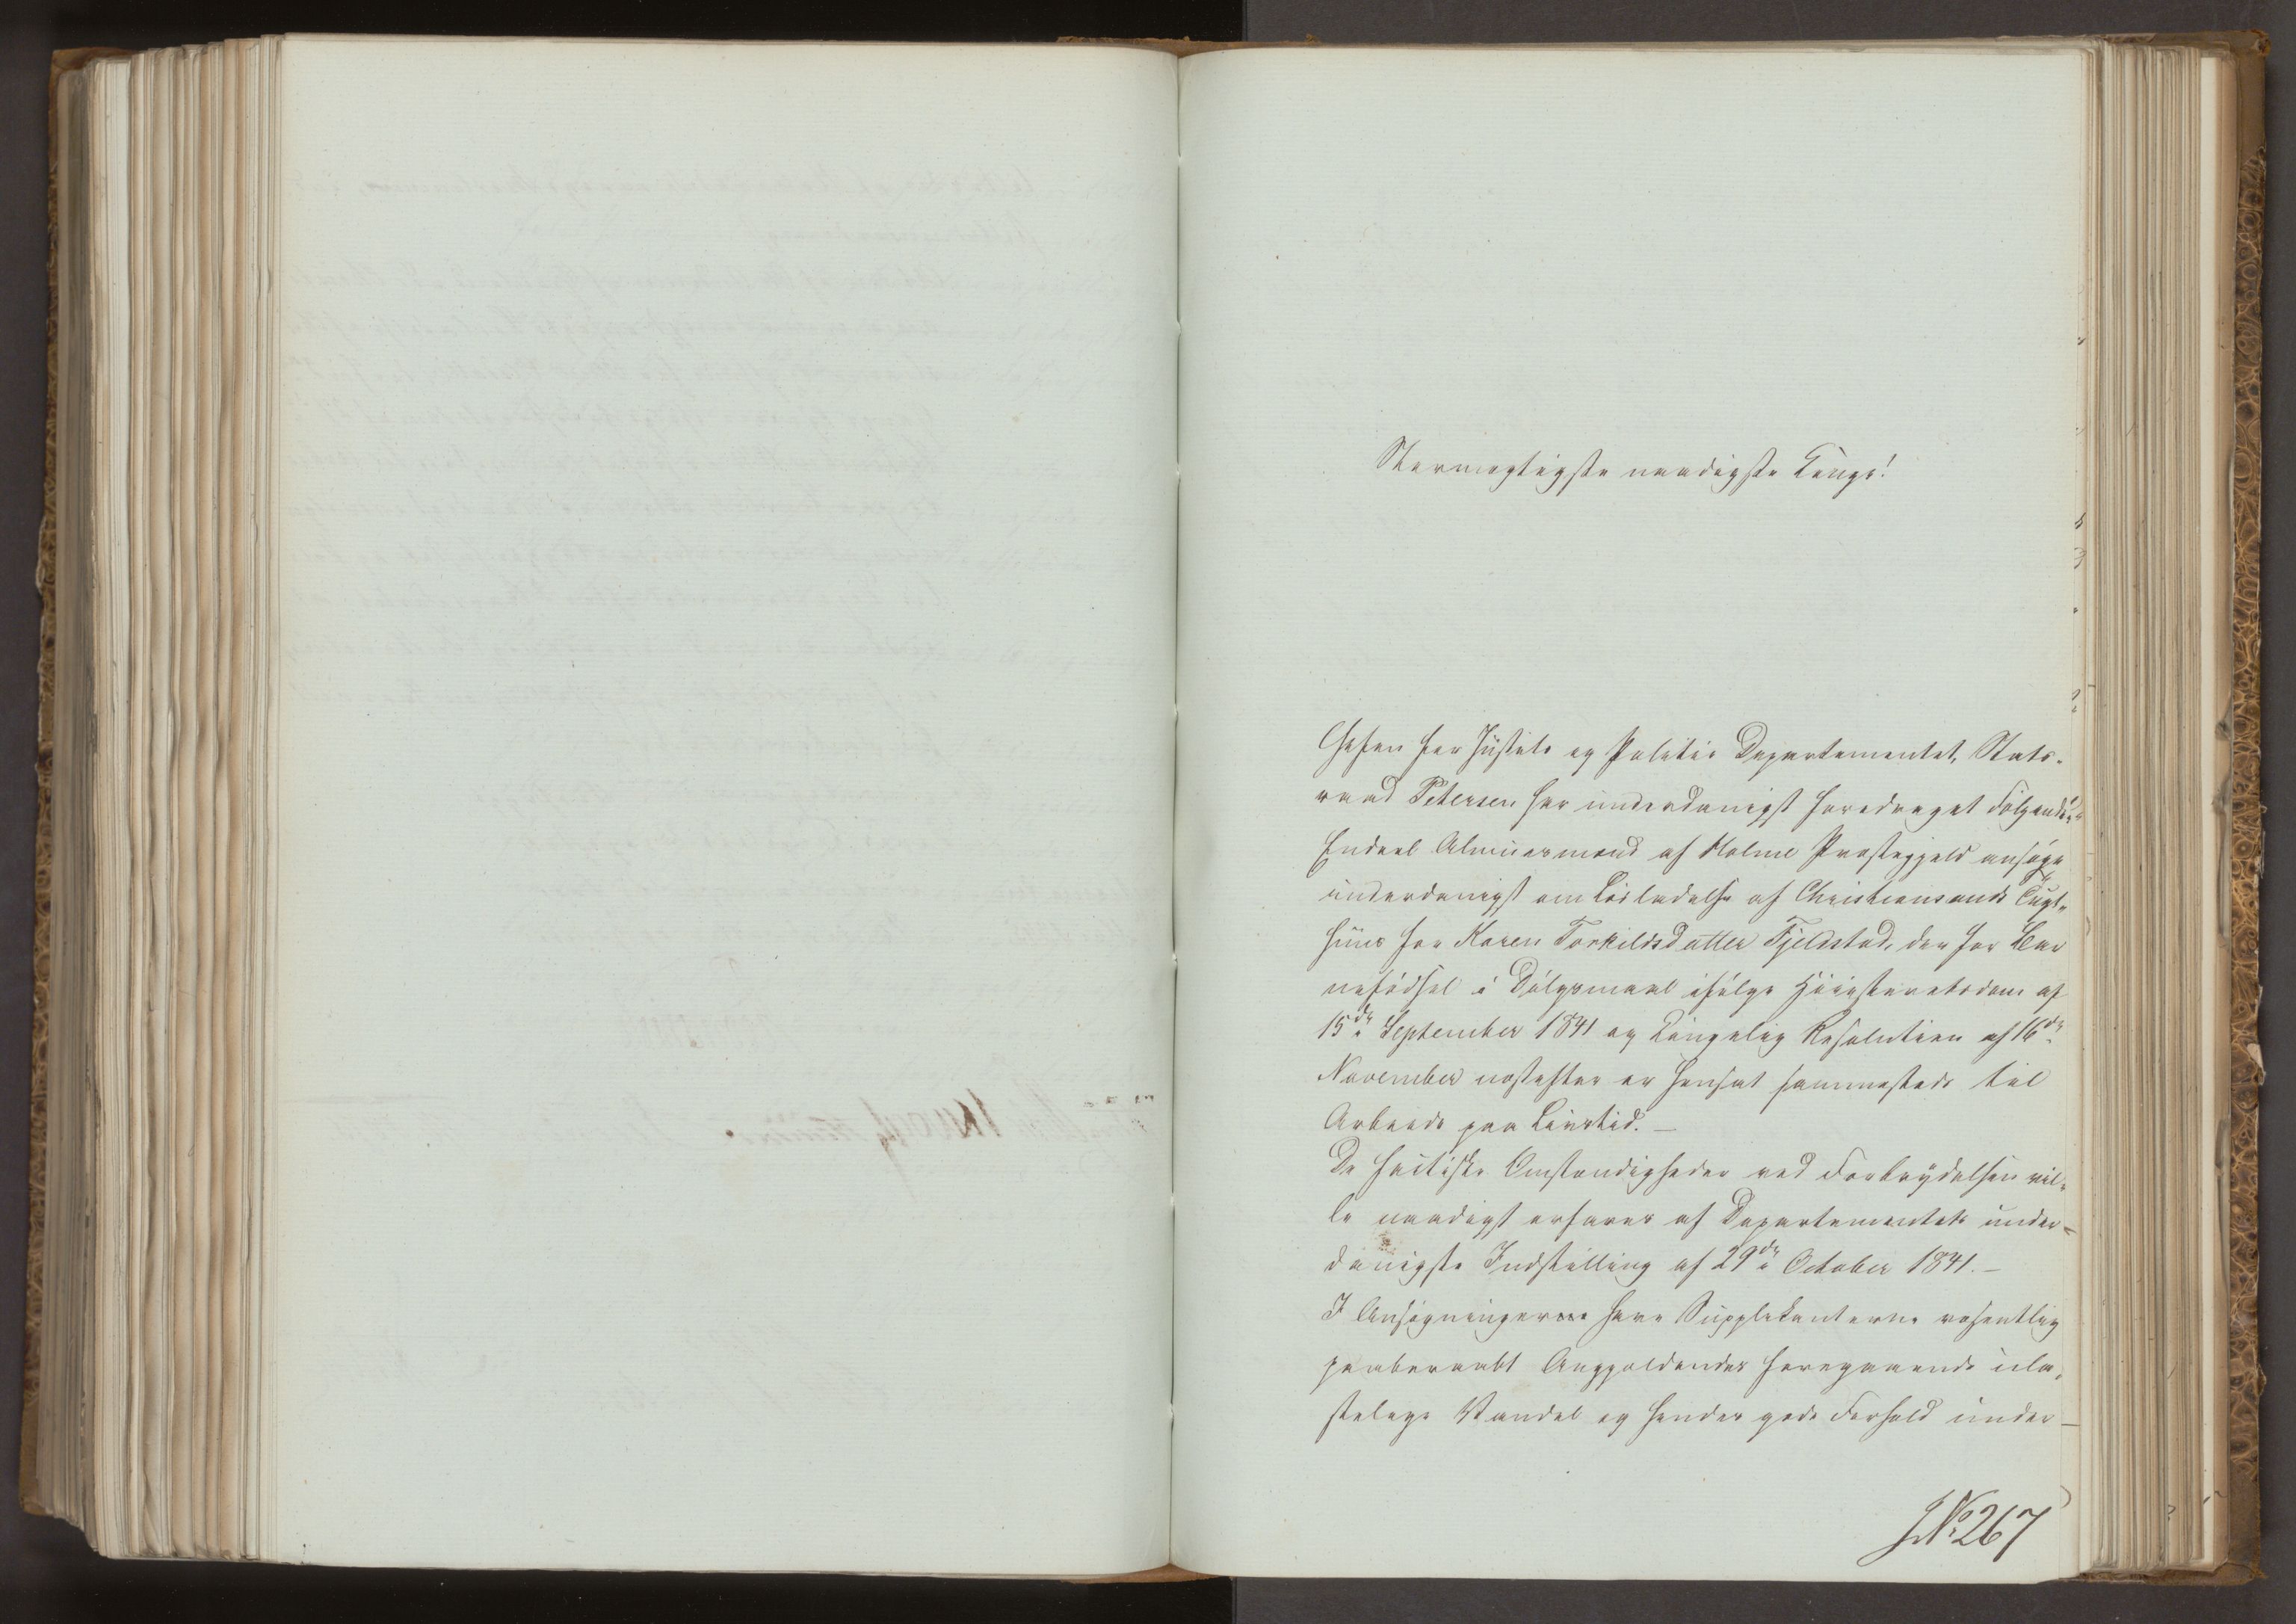 Stormægtigste naadigste Konge!
Chefen for Justits og Politie Departementet, Stats-
raad Petersen har underdanigst foredraget Følgende:
Endeel Almuesmænd af Holme Præstegjeld ansøge
underdanigst om Løsladelse af Christiansands Tugt-
huus for Karen Torkildsdatter Fjeldstad, der for Bar
nefødsel i Dølgsmaal ifølge Høiesteretsdom af
15de September 1841 og Kongelig Resolution af 16de
November næstefter er hensat sammesteds til
Arbeide paa Livstid.—
De factiske Omstændigheder ved Forbrydelsen vil-
le naadigst erfares af Departementets under-
danigste Indstilling af 29de October 1841.—
I Ansøgningerne have Supplikanterne væsentlig
paaberaabt Angjældendes foregaaende ula-
stelige Vandel og hendes gode Forhold under-
JNo 267